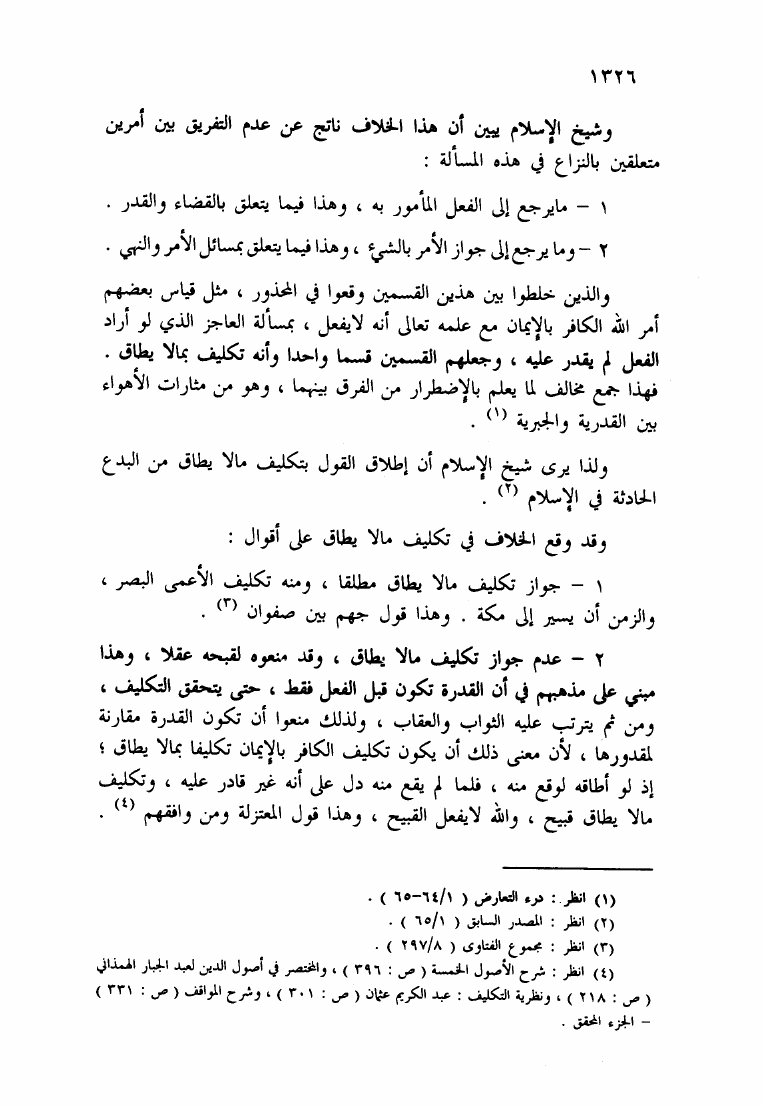 ١٣٢٦
وشيخ الإسلام يبين أن هذا الخلاف ناتج عن عدم التفريق بين أمرين
متعلقين بالنزاع في هذه المسألة :
١ – مايرجع إلى الفعل المأمور به ، وهذا فيما يتعلق بالقضاء والقدر .
٢ – وما يرجع إلى جواز الأمر بالشيء ، وهذا فيما يتعلق بمسائل الأمر والنهي .
والذين خلطوا بين هذين القسمين وقعوا في المحذور ، مثل قياس بعضهم
أمر الله الكافر بالإيمان مع علمه تعالى أنه لايفعل ، بمسألة العاجز الذي لو أراد
الفعل لم يقدر عليه ، وجعلهم القسمين قسما واحدا وأنه تكليف بمالا يطاق .
فهذا جمع مخالف لما يعلم بالإضطرار من الفرق بينهما ، وهو من مثارات الأهواء
بين القدرية والجبرية (١) .
ولذا يرى شيخ الإسلام أن إطلاق القول بتكليف مالا يطاق من البدع
الحادثة في الإسلام (٢) .
وقد وقع الخلاف في تكليف مالا يطاق على أقوال :
١ – جواز تكليف مالا يطاق مطلقا ، ومنه تكليف الأعمى البصر ،
والزمن أن يسير إلى مكة . وهذا قول جهم بين صفوان (٣) .
٢ – عدم جواز تكليف مالا يطاق ، وقد منعوه لقبحه عقلا ، وهذا
مبني على مذهبهم في أن القدرة تكون قبل الفعل فقط ، حتى يتحقق التكليف ،
ومن ثم يترتب عليه الثواب والعقاب ، ولذلك منعوا أن تكون القدرة مقارنة
لمقدورها ، لأن معنى ذلك أن يكون تكليف الكافر بالإيمان تكليفا بمالا يطاق ؛
إذ لو أطاقه لوقع منه ، فلما لم يقع منه دل على أنه غير قادر عليه ، وتكليف
مالا يطاق قبيح ، والله لايفعل القبيح ، وهذا قول المعتزلة ومن وافقهم (٤) .
(١) انظر : درء التعارض ( ١/٦٤–٦٥ ) .
(٢) انظر : المصدر السابق ( ١/٦٥ ) .
(٣) انظر : مجموع الفتاوى ( ٨/٢٩٧ ) .
(٤) انظر : شرح الأصول الخمسة ( ص : ٣٩٦ ) ، والمختصر في أصول الدين لعبد الجبار الهمذاني
( ص : ٢١٨ ) ، ونظرية التكليف : عبد الكريم عثمان ( ص : ٣٠١ ) ، وشرح المواقف ( ص : ٣٣١ )
– الجزء المحقق .